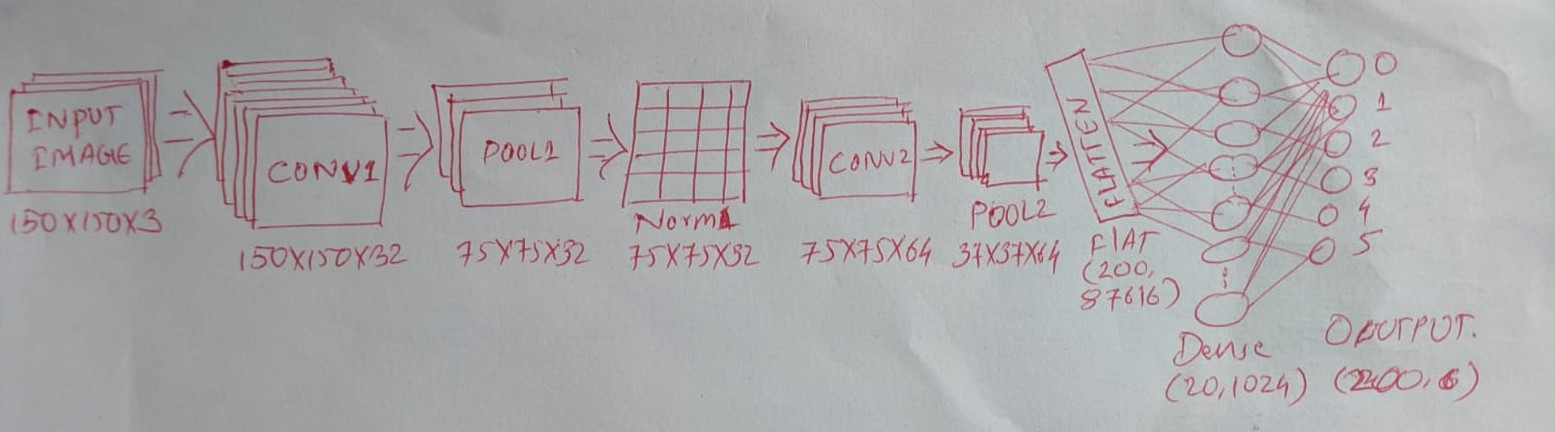 INPUT
IMAGE
150X150X3
CONV1
150X150X32
POOL1
75X75X32
Norm1
75X75X32
CONV2
75X75X64
POOL2
37X37X64
FLATTEN
FlAT
(200,
87616)
Dense
(20,1024)
0
1
2
3
4
5
OUTPUT.
(200,6)